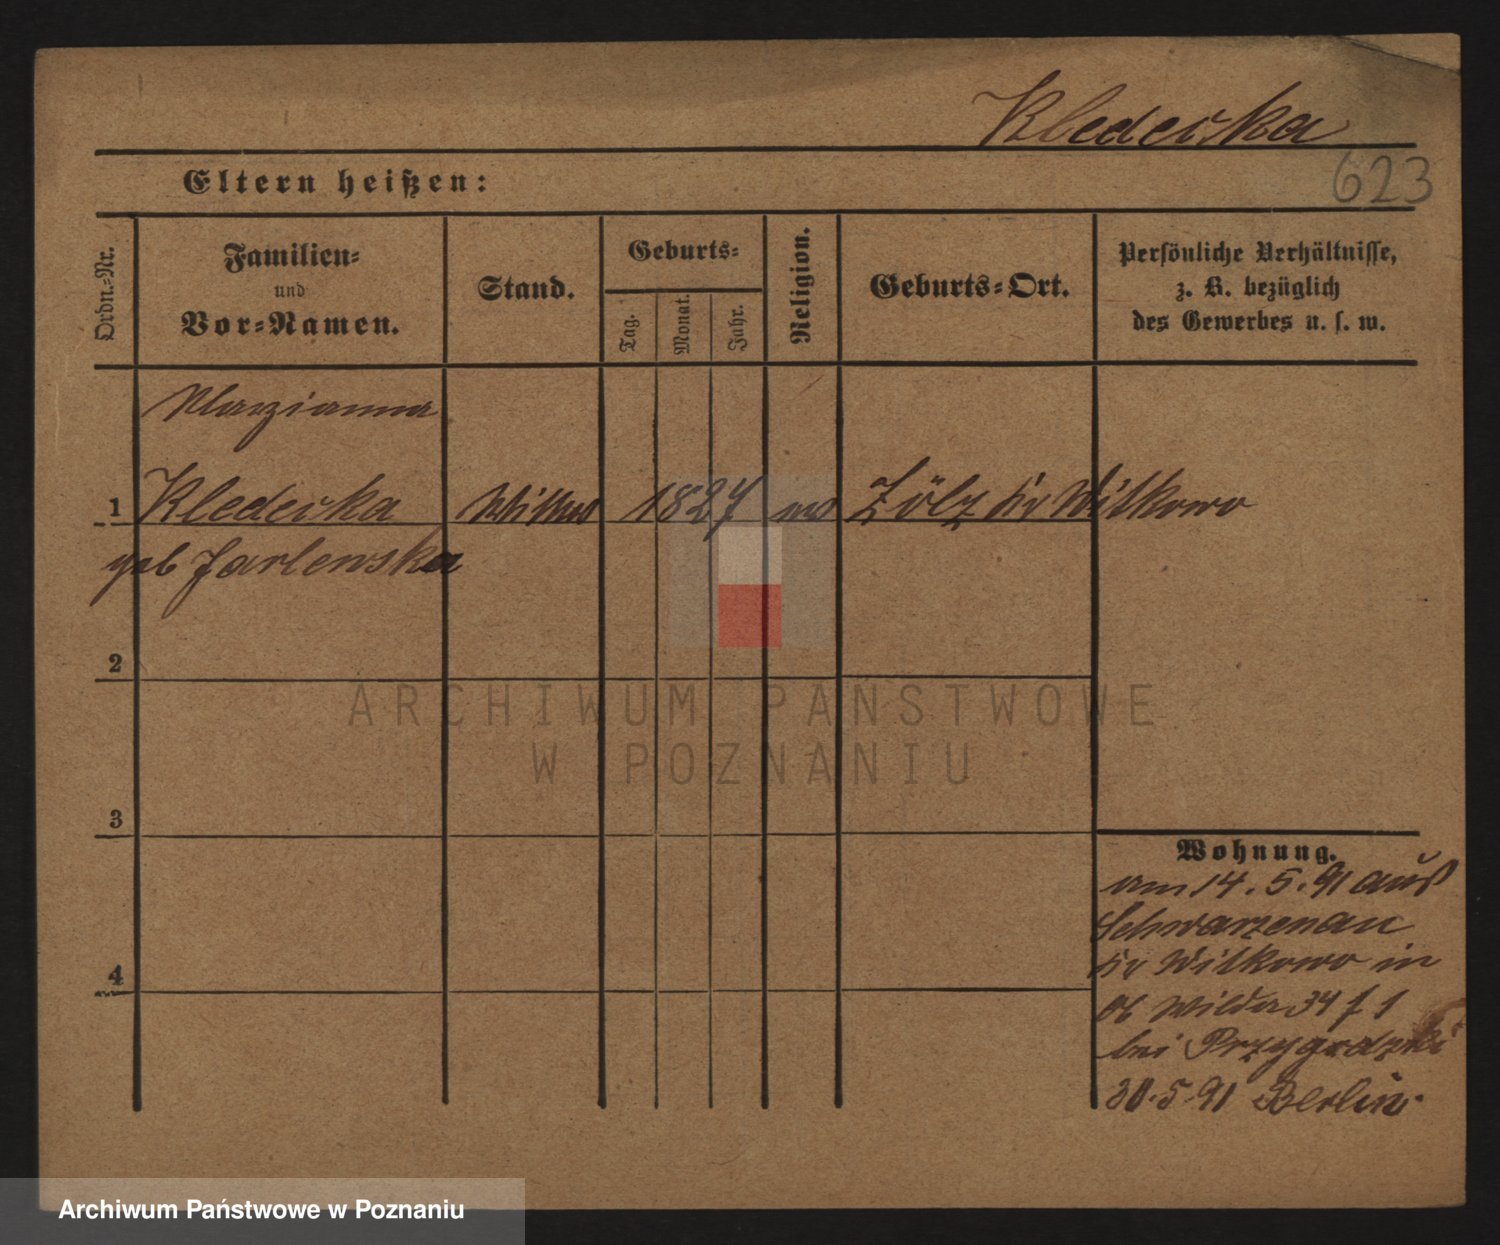 Kledecka
623
Eltern heißen:
Ordn.-Nr.
Familien-
und
Vor-Namen.
Stand.
Geburts-
Tag.
Monat.
Jahr.
Religion.
Geburts-Ort.
Persönliche Verhältnisse,
z. B. bezüglich
des Gewerbes u. s. w.
Marzianna
1 Kledecka 1827 Zölz Kr Witkowo
geb Jarlewska
2
3
4
ARCHIWUM PAŃSTWOWE
W POZNANIU
Wohnung.
am 14.5.91 aus
Schwarzenau
Kr Witkowo in
Ob Wilda 34 f 1
bei Przygodzki
30.5.91 Berlin.
Archiwum Państwowe w Poznaniu